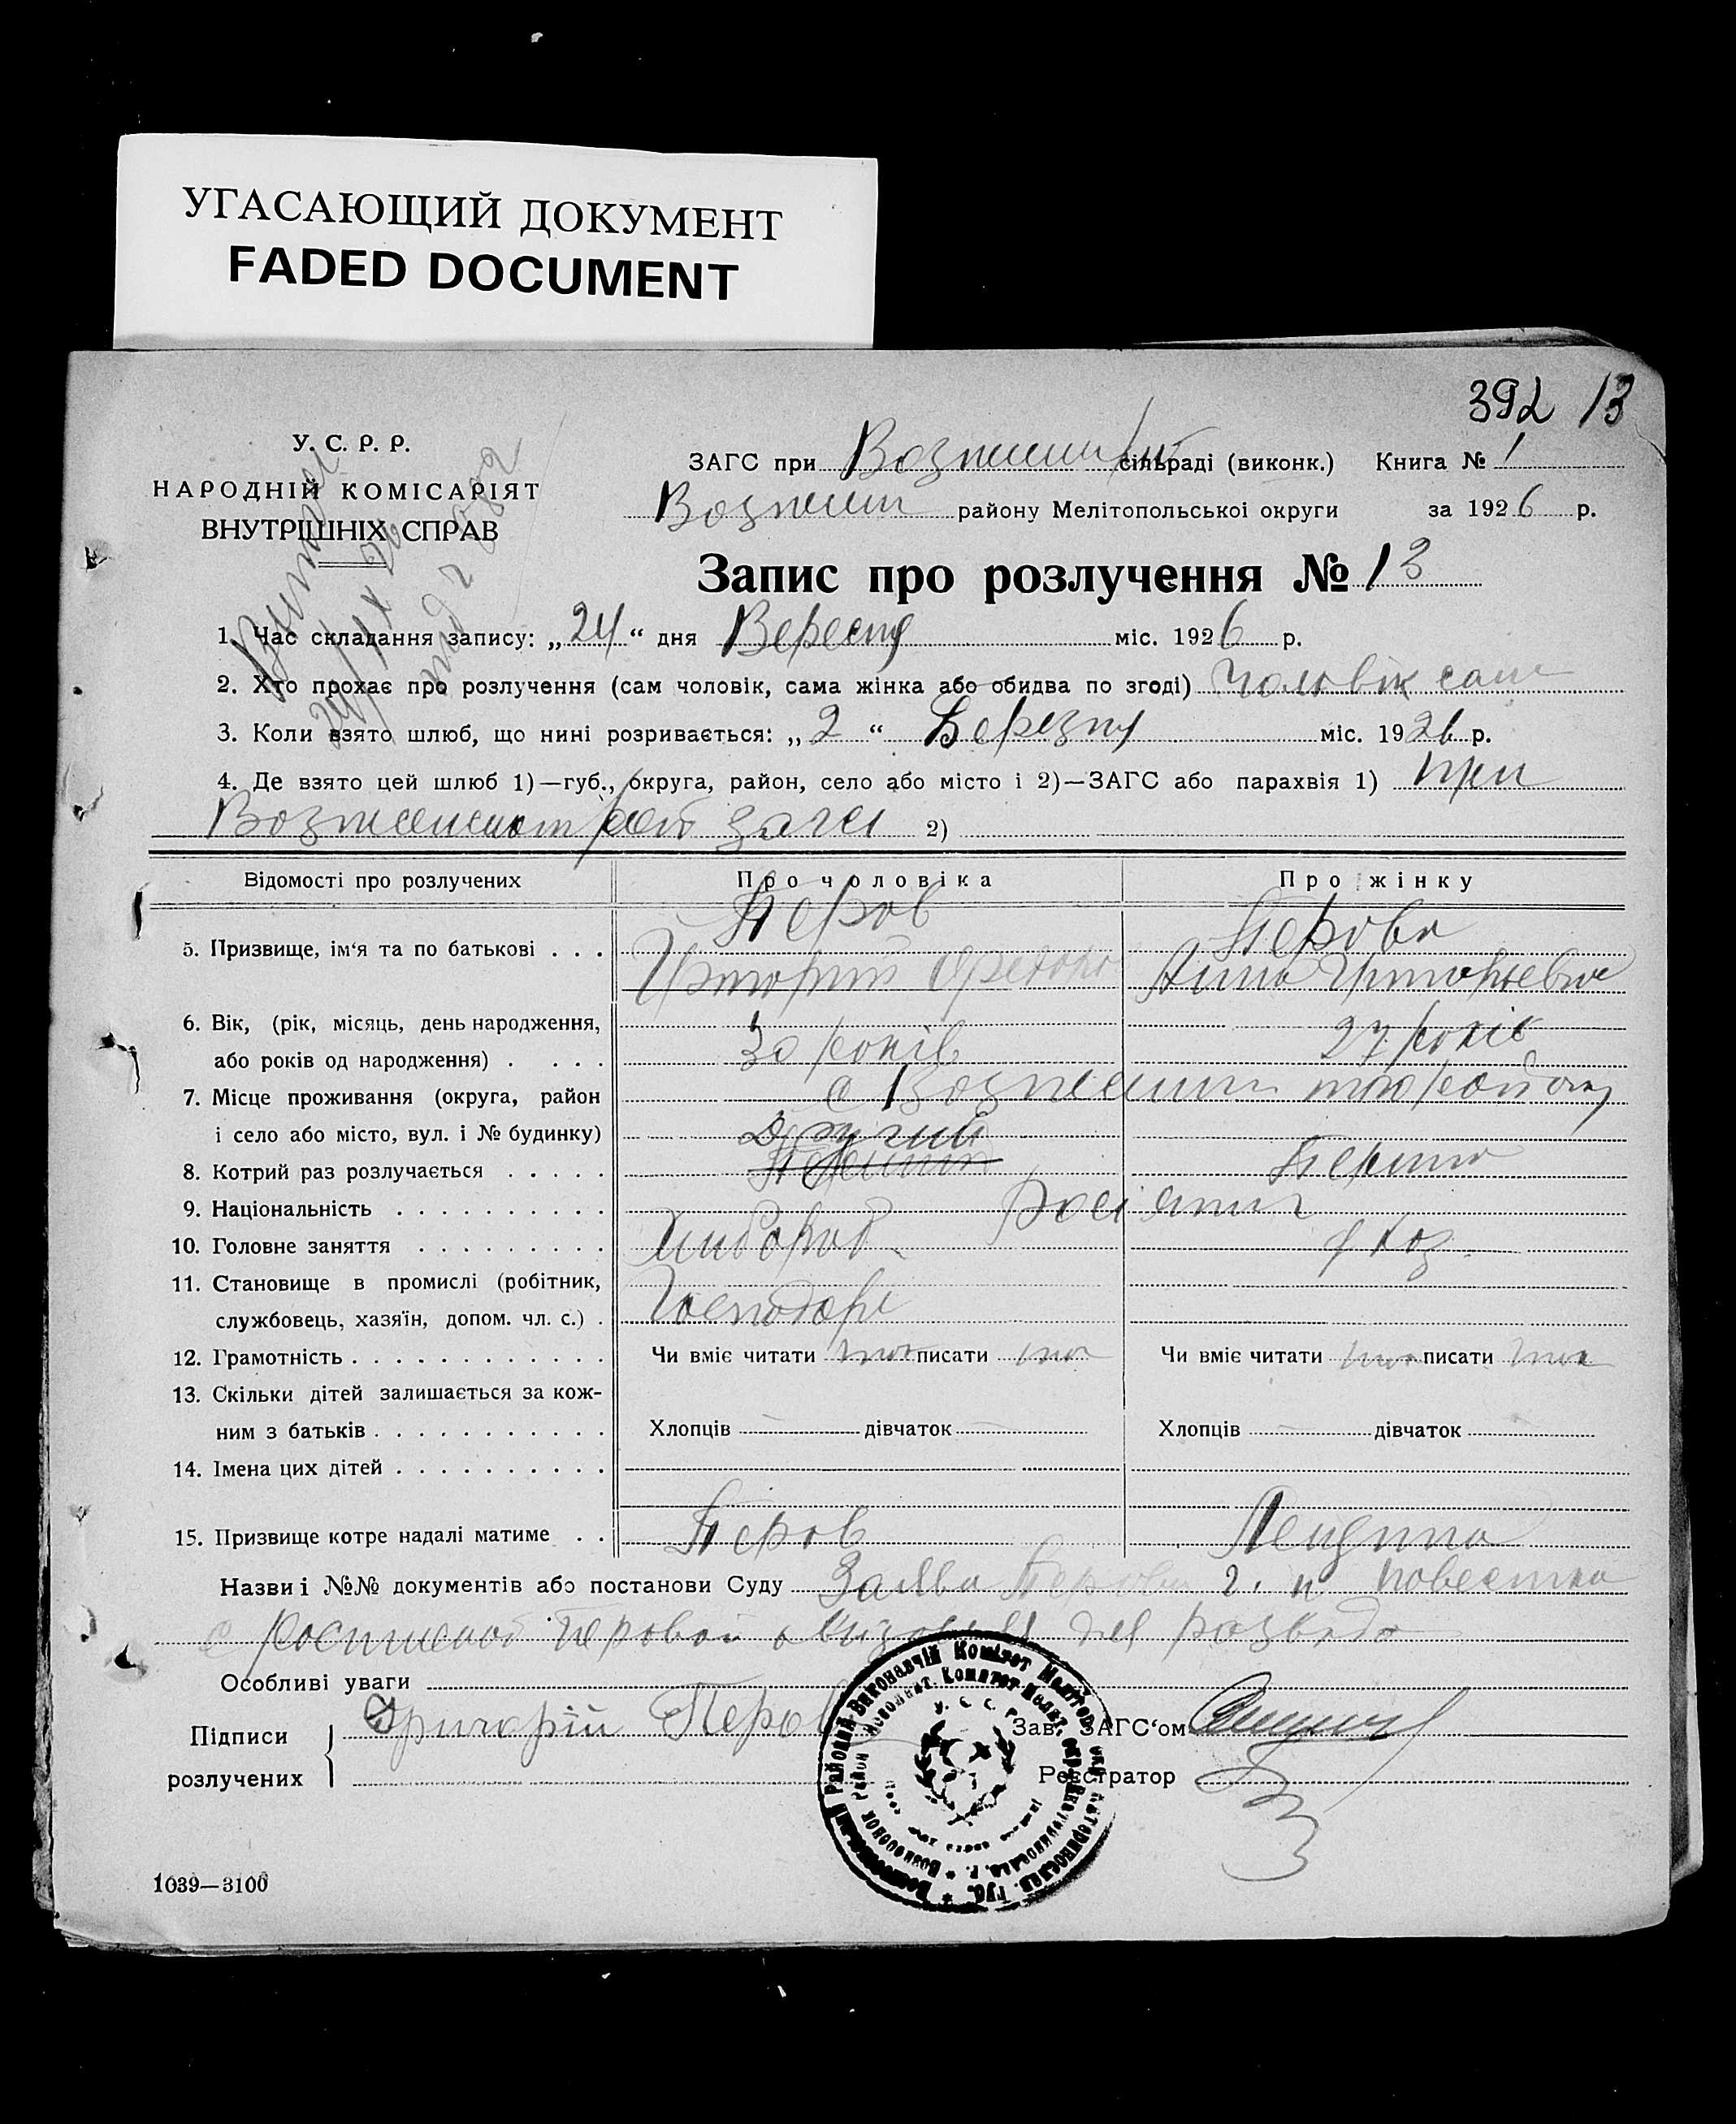 УГАСАЮЩИЙ ДОКУМЕНТ
FADED DOCUMENT
392 13
У. С. Р. Р.
НАРОДНІЙ КОМІСАРІЯТ
ВНУТРІШНІХ СПРАВ
ЗАГС при сільраді (виконк.) Книга № 1
району Мелітопольськоі округи за 1926 р.
Запис про розлучення № 13
1. Час складання запису: „24“ дня Вересня міс. 1926 р.
2. Хто прохає про розлучення (сам чоловік, сама жінка або обидва по згоді) Чоловік сам
3. Коли взято шлюб, що нині розривається: „2“ Березня міс. 1926 р.
4. Де взято цей шлюб 1)—губ., округа, район, село або місто і 2)—ЗАГС або парахвія 1) при
загсі 2)
Відомості про розлучених Про чоловіка Про жінку
5. Призвище, ім‘я та по батькові . . . Перов Перова
Григорій Анна Григорьевна
6. Вік, (рік, місяць, день народження,
або років од народження) . . . . 30 років 27 років
7. Місце проживання (округа, район
і село або місто, вул. і № будинку)
8. Котрий раз розлучається . . . . . Другий Перший Перший
9. Національність . . . . . . . . . .
10. Головне заняття . . . . . . . . . Хлібороб
11. Становище в промислі (робітник,
службовець, хазяїн, допом. чл. с.) . Господарь
12. Грамотність . . . . . . . . . . . . Чи вміє читати писати Чи вміє читати писати
13. Скільки дітей залишається за кож-
ним з батьків . . . . . . . . . . . Хлопців — дівчаток — Хлопців — дівчаток —
14. Імена цих дітей . . . . . . . . . .
15. Призвище котре надалі матиме . . Перов
Назви і №№ документів або постанови Суду Заява Перова Г. и повестка
с роспиской Перовой о для розвода
Особливі уваги
Підписи розлучених Григорій Перов Зав. ЗАГС‘ом
Реєстратор
1039—3100